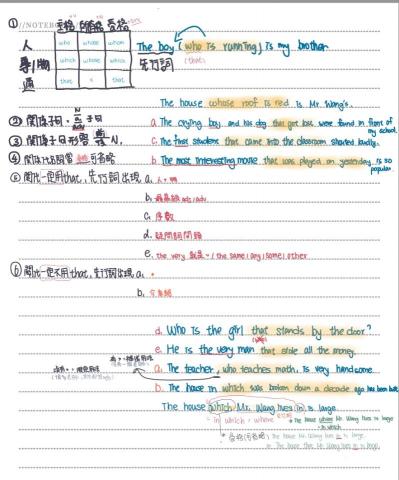 ①
主格 所有格 受格
人 who whose whom
事/物 which whose which
通 that x that
The boy (who is running) is my brother.
先行詞 (that)
The house whose roof is red is Mr. Wang's.
② 關係子句
a. The crying boy and his dog that got lost were found in front of my school.
③
c. The first student that came into the classroom shouted loudly.
④
b. The most interesting movie that was played on yesterday is so popular.
⑤ 關代一定用that, 先行詞出現 a. 人+物
b. 最高級 adj/adv
c. 序數
d. 疑問詞開頭
e. the very / the same / any / some / other
⑥ 關代一定不用that, 先行詞出現 a.
b. 介系詞
d. Who is the girl that stands by the door?
e. He is the very man that stole all the money.
a. The teacher, who teaches math, is very handsome.
b. The house in which was broken down a decade ago has been built
The house which Mr. Wang lives in is large.
in which = where
The house where Mr. Wang lives is large
in which
The house Mr. Wang lives in is large.
The house that Mr. Wang lives in is large.